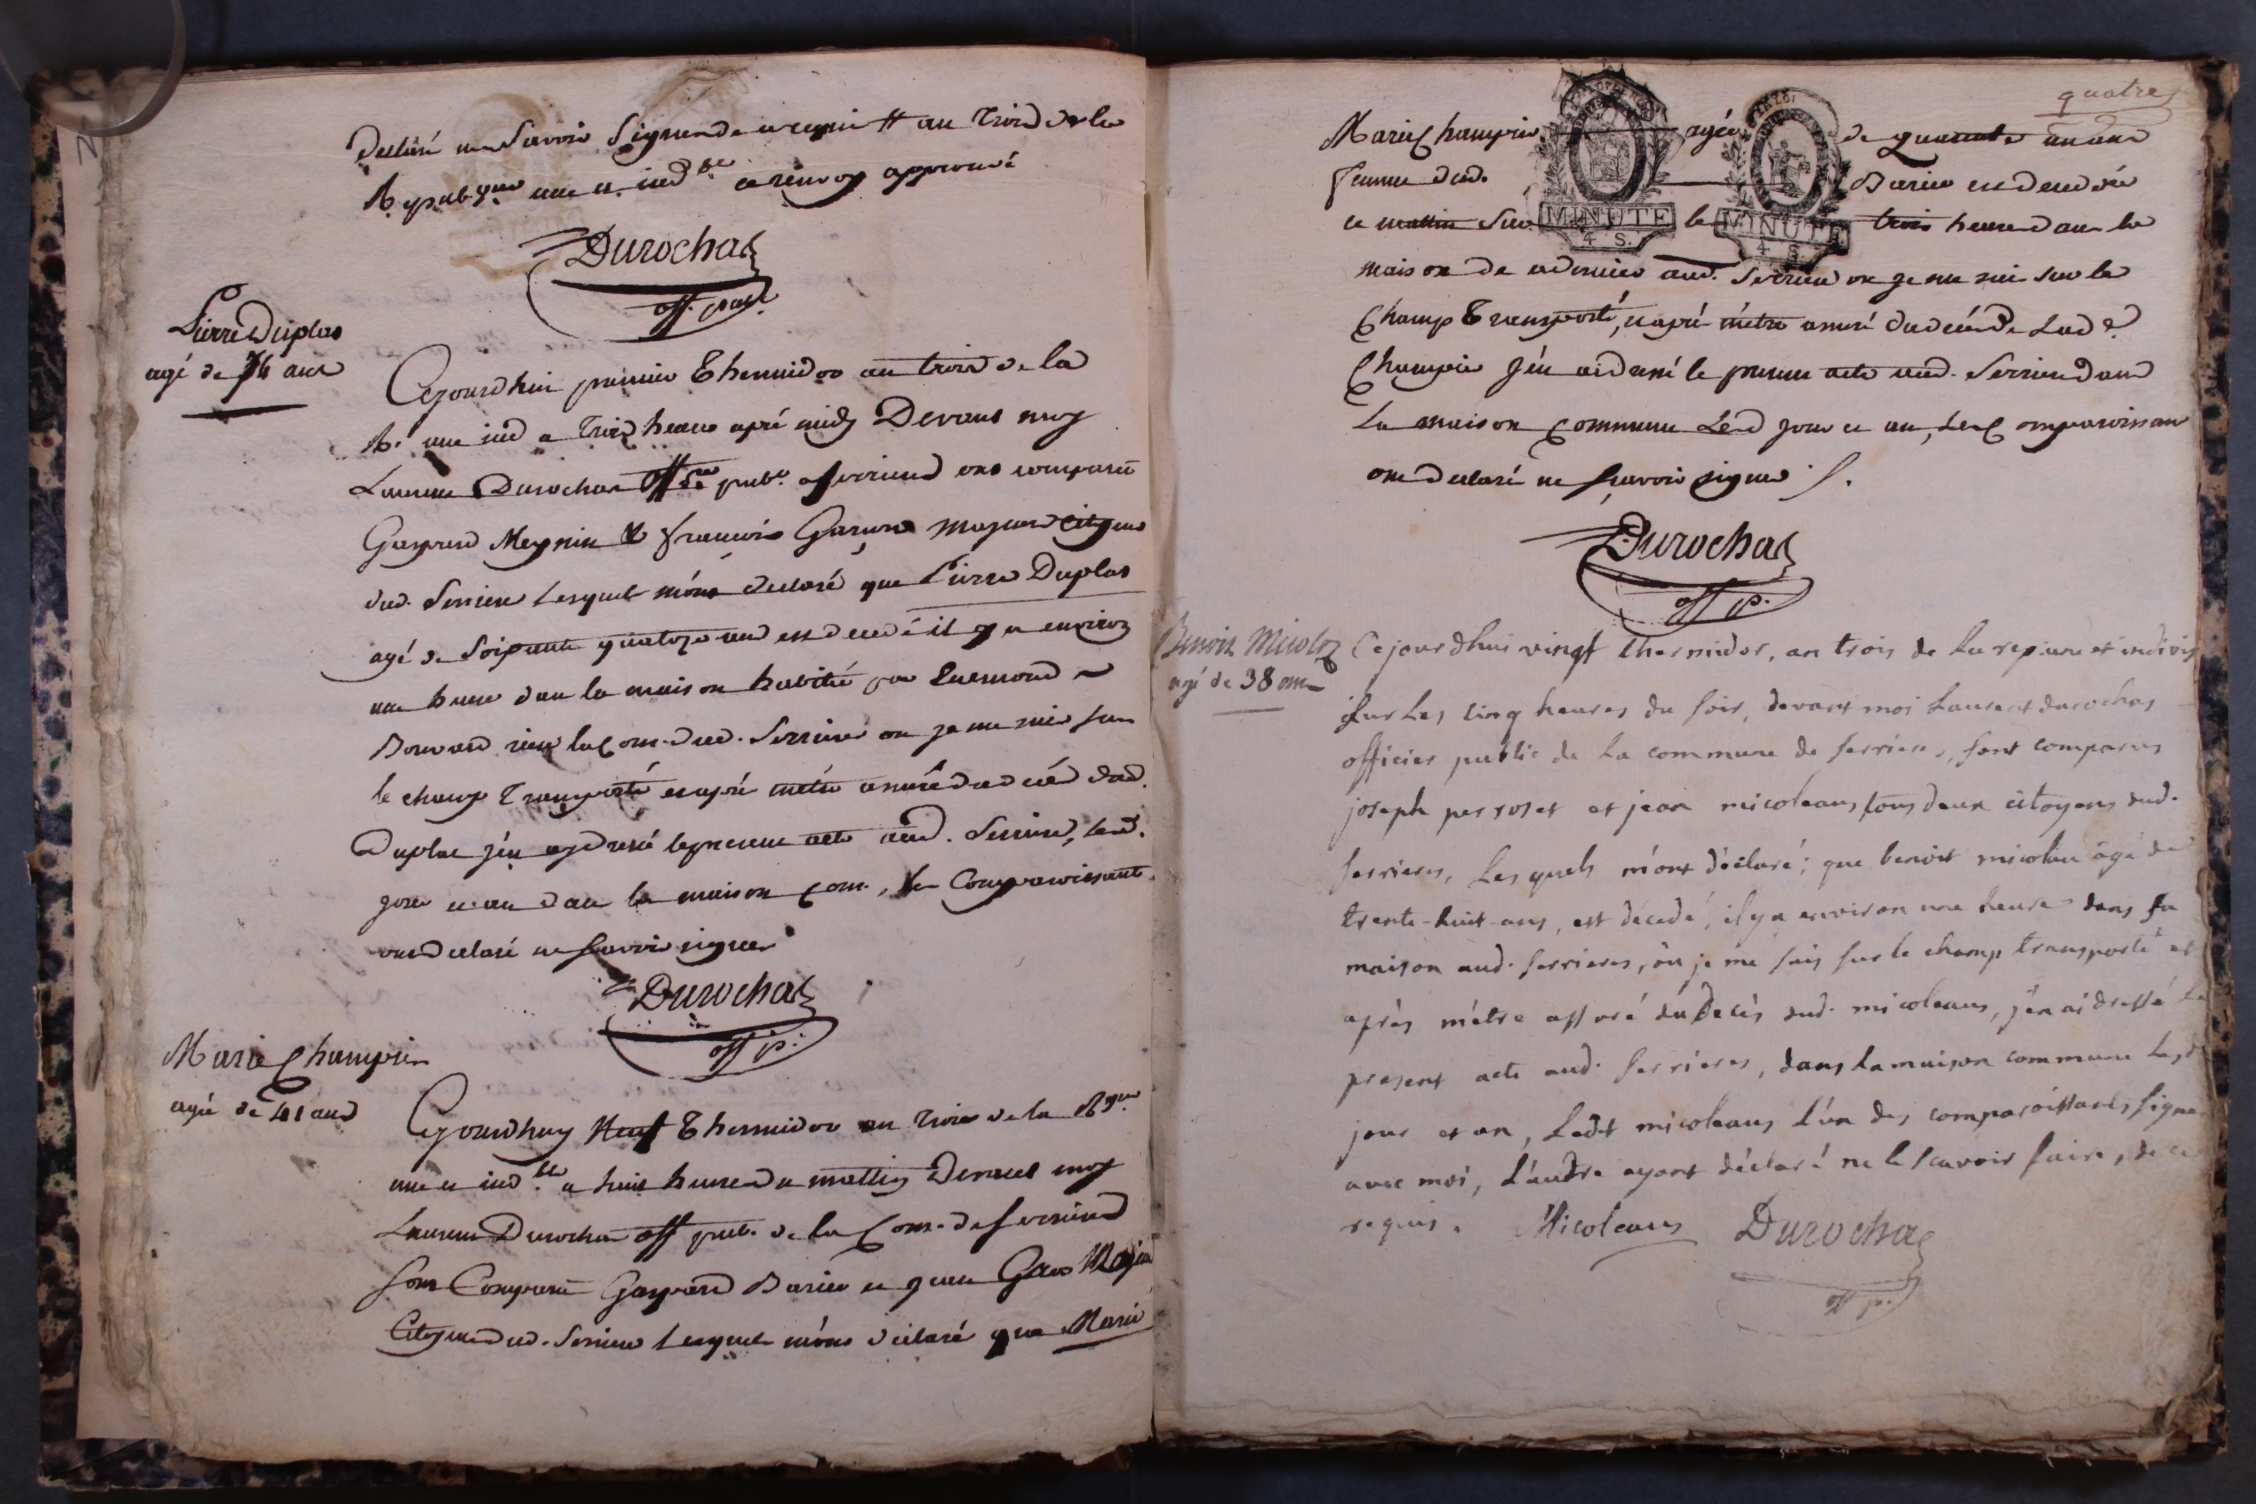 declaré ne Savoir Signer de ce requis # an trois de la
Repub.que une et ind.ble ce renvoy approuvé
Durochas
off. publ.
Pierre Duplas
agé de 74 ans
Cejourdhui premier Thermidor an trois de la
R. une ind a trois heures apré midy Devant moy
Laurent Durochas off.er pub. a Serrieres ont comparu
Gaspard Meynin & francois Garnon majeurs Citoyens
dud. Serriere Lesquels m'ont declaré que Pierre Duplas
agé de Soixante quatorze ans est decedé il y a environ
une heure dans la maison habitée par
Bouvard rieu la Com. dud. Serrieres ou je me suis sur
le champ Transporté et apré m'etre assuré du decéd dud.
Duplas j'en ay dressé le present acte aud. Serriere, lesd.
jour et an dans la maison com., les Comparoissants
ont declaré ne Savoir signer
Durochas
off p.
Marie Champin
agée de 41 ans
Cejourdhuy Neuf Thermidor an trois de la R.que
une et ind.ble a huit heures du mattin Devant moy
Laurent Durochas off pub. de la Com. de Serrieres
Sont Comparu Gaspard Barieu et jean Gaus Majeurs
Citoyens dud. Serriere Lesquels m'ont declaré que Marie
quatre
Marie Champin agée de quarante un ans
femme dud. Barieu est decedée
ce mattin Sur les trois heures dans la
MINUTE
4 S.
MINUTE
4 S.
maison de ce dernier aud. Serrieres ou je me suis sur le
Champ Transporté, et apré m'etre assuré du decéd de Lad.e
Champin J'en ai dressé le present acte aud. Serrieres dans
La maison Commune Lesd jour et an, Les Comparoissants
ont declaré ne Scavoir signer.
Durochas
off p.
Benoit Micoloz
agé de 38 ans
Cejourdhui vingt thermidor, an trois de La rep. une et indivis
Sur Les cinq heures du soir, devant moi Laurent durochas
officier public de La commune de serrieres, sont comparus
joseph perroset et jean micoleaus tous deux citoyens dud.
serrieres, Lesquels m'ont déclaré; que benoit micolau âgé de
trente-huit ans, est décédé, il y a environ une heure dans sa
maison aud. serrieres, où je me suis sur le champ transporté et
après m'être assuré du decès dud. micoleaus, j'en ai dressé Le
present acte aud. serrieres, dans La maison commune Lesd
jour et an, Ledt micoleaus L'un des comparoissants signe
avec moi, L'autre ayant déclaré ne le scavoir faire, de ce
requis. Micoleaus Durochas
off p.